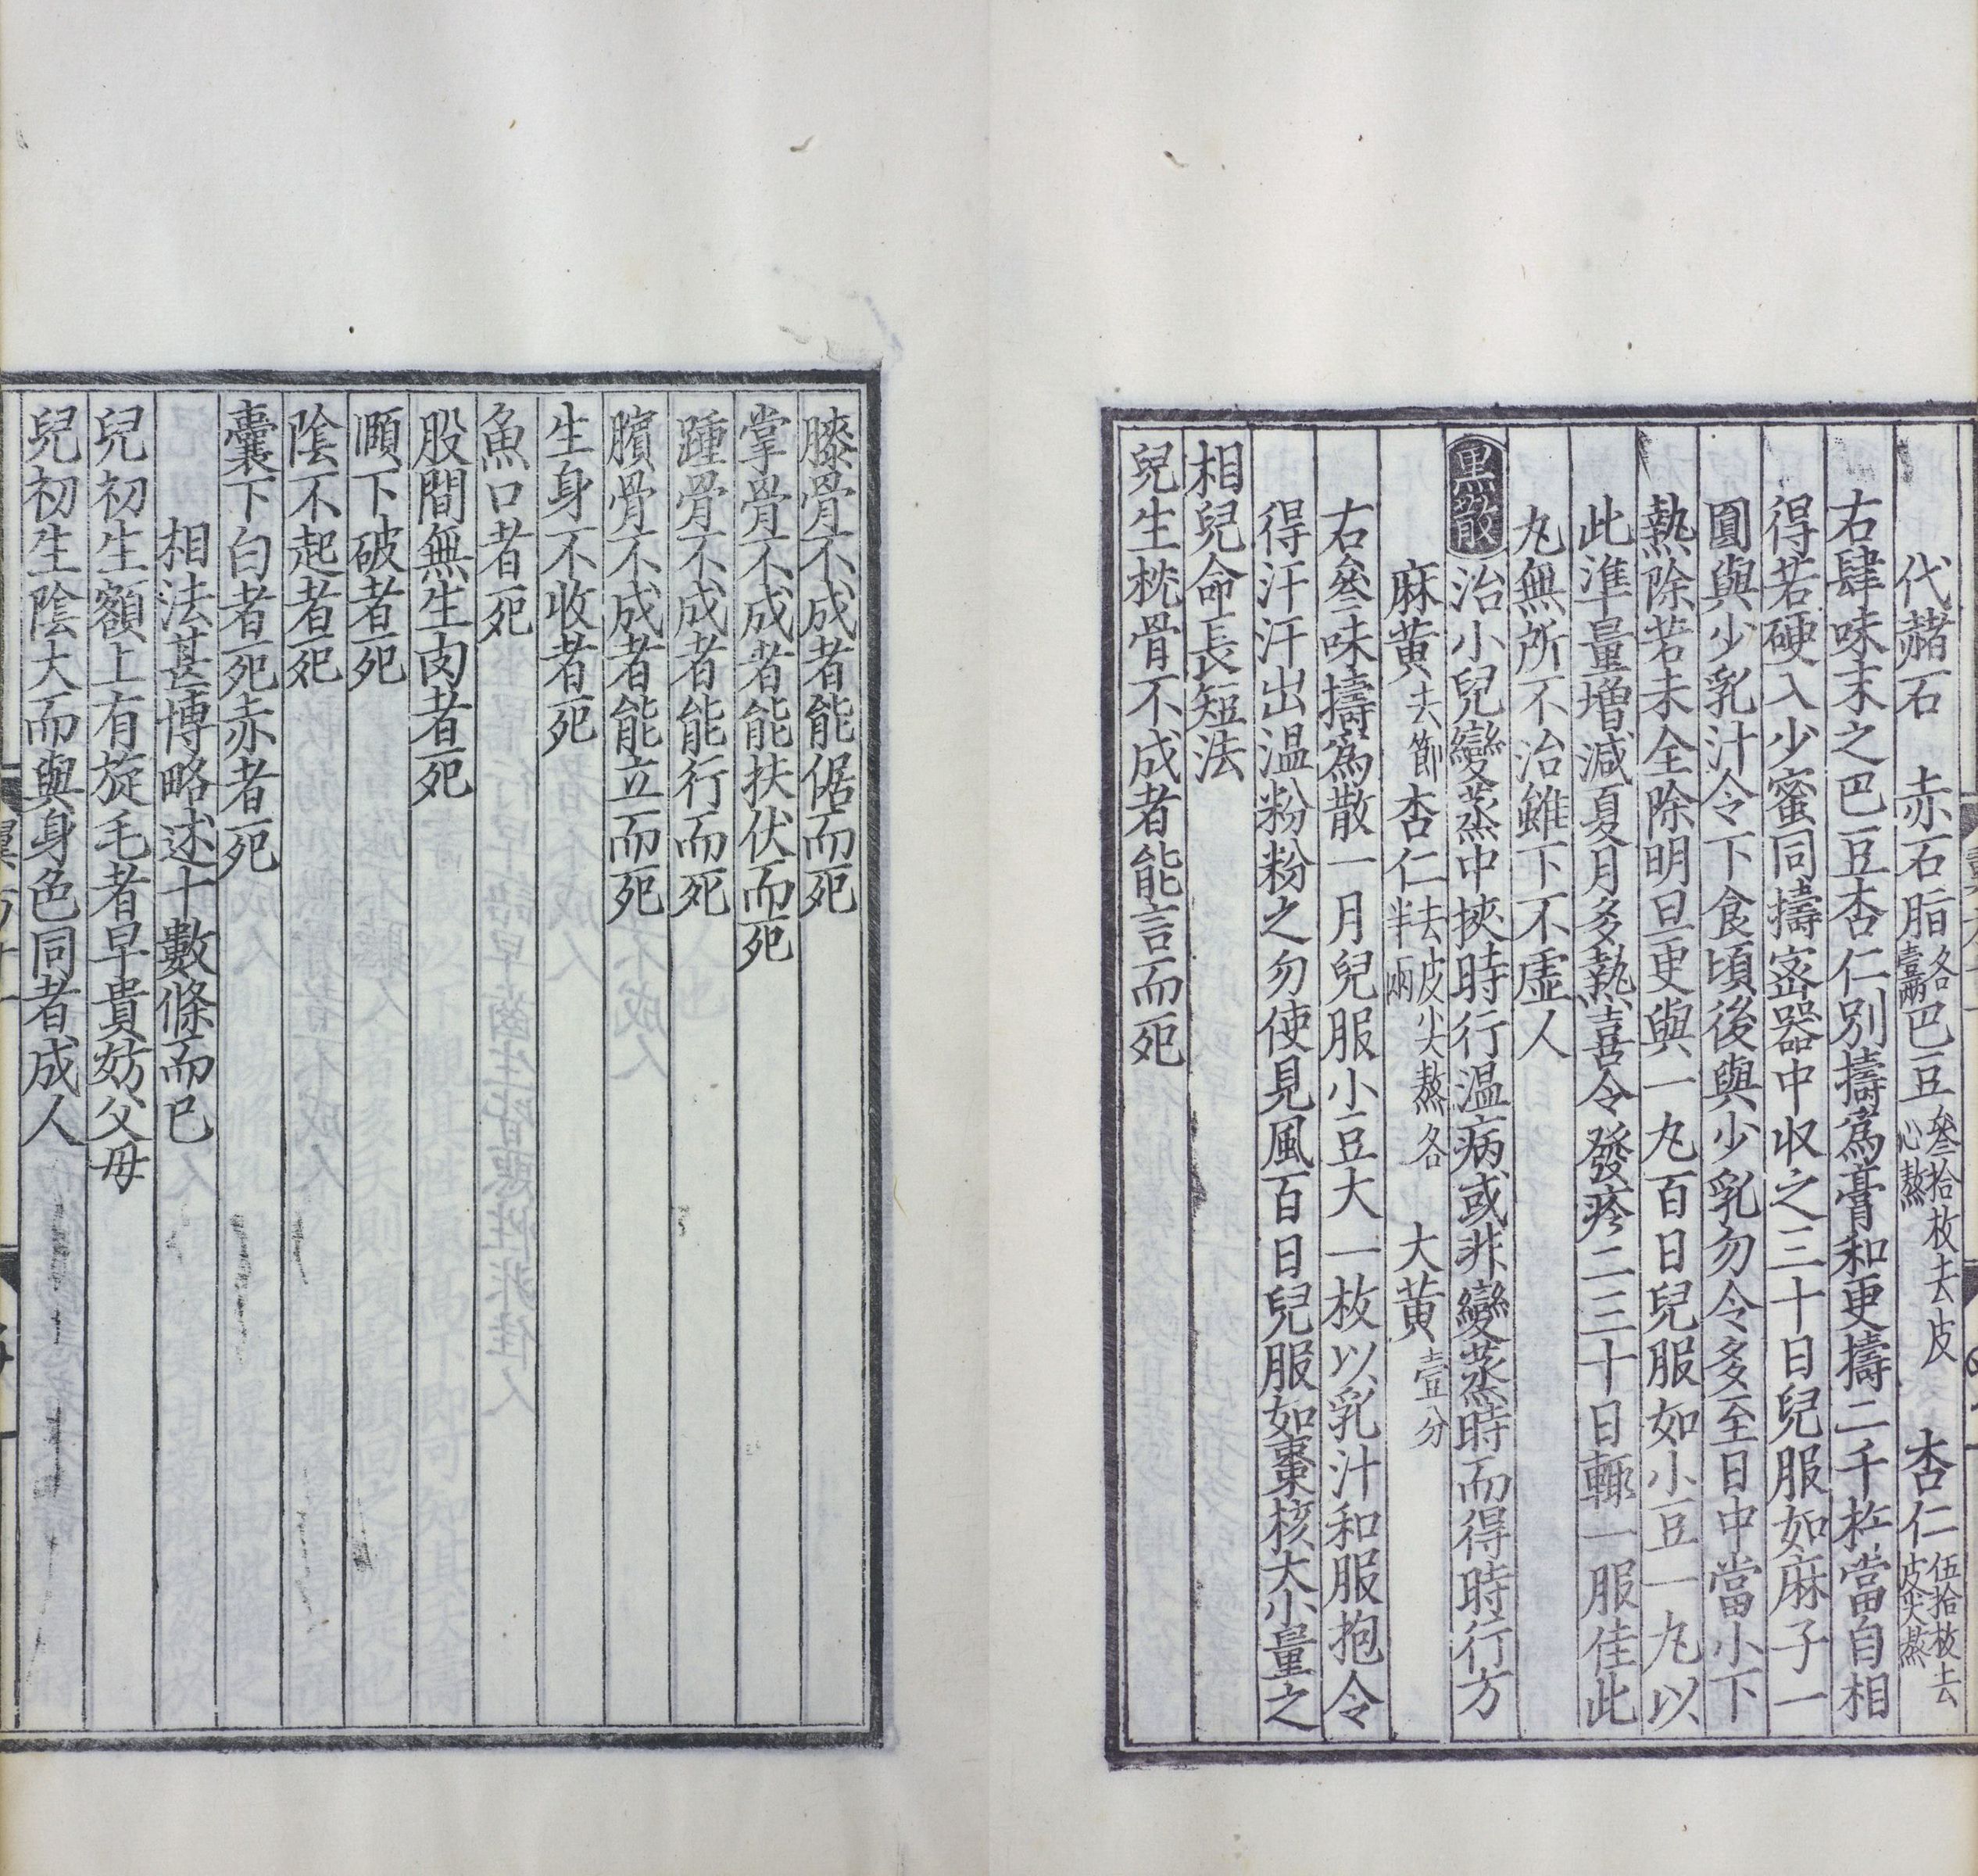 代赭石　赤石脂各壹兩巴豆叄拾枚去皮心熬　杏仁伍拾枚去皮尖熬
右肆味末之巴豆杏仁別擣爲膏和更擣二千杵當自相
得若硬入少蜜同擣密器中收之三十日兒服如麻子一
圓與少乳汁令下食頃後與少乳勿令多至日中當小下
熱除若未全除明旦更與一丸百日兒服如小豆一丸以
此準量增減夏月多熱喜令發疹二三十日輙一服佳此
丸無所不治雖下不虛人
黑散治小兒變蒸中挾時行溫病或非變蒸時而得時行方
麻黃去節杏仁去皮尖熬各半兩　大黃壹分
右叄味擣爲散一月兒服小豆大一枚以乳汁和服抱令
得汗汗出溫粉粉之勿使見風百日兒服如棗核大小量之
相兒命長短法
兒生枕骨不成者能言而死
膝骨不成者能倨而死
掌骨不成者能扶伏而死
踵骨不成者能行而死
臏骨不成者能立而死
生身不收者死
魚口者死
股間無生肉者死
顖下破者死
陰不起者死
囊下白者死赤者死
相法甚博略述十數條而已
兒初生額上有旋毛者早貴妨父母
兒初生陰大而與身色同者成人